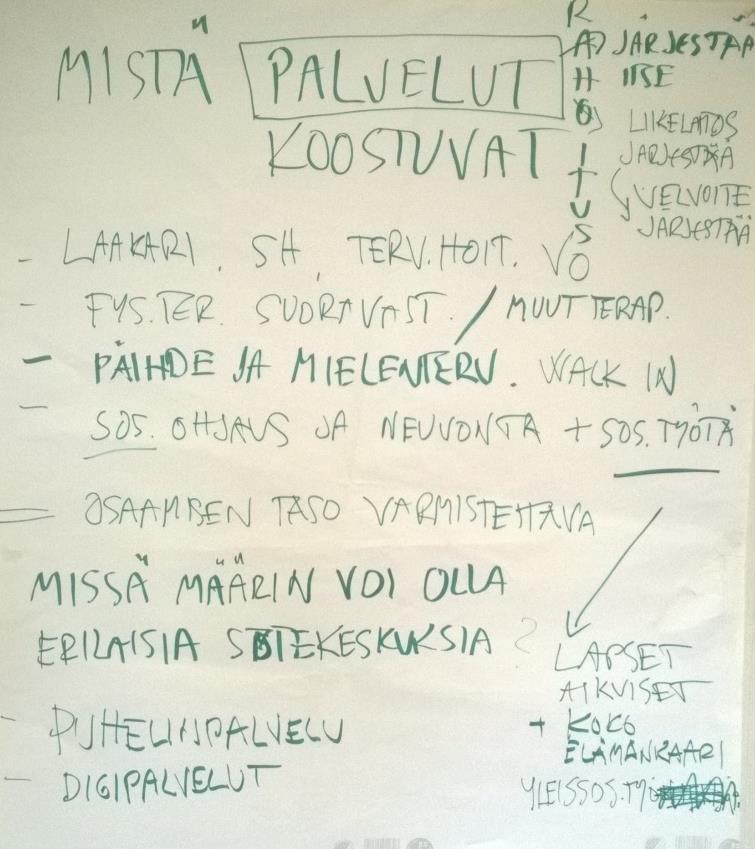 MISTÄ PALVELUT
KOOSTUVAT
RAHOITUS
A) JÄRJESTÄÄ
ITSE
B) LIIKELAITOS
JÄRJESTÄÄ
VELVOITE
JÄRJESTÄÄ
- LAAKARI, SH, TERV.HOIT. VO
- FYS.TER. SUORAVAST. / MUUT TERAP.
- PÄIHDE JA MIELENTERV. WALK IN
- SOS. OHJAUS JA NEUVONTA + SOS. TYÖTÄ
= OSAAMISEN TASO VARMISTETTAVA
MISSÄ MÄÄRIN VOI OLLA
ERILAISIA SOTEKESKUKSIA ?
- PUHELINPALVELU
- DIGIPALVELUT
LAPSET
AIKUISET
+ KOKO
ELÄMÄNKAARI
YLEISSOS.TYÖ